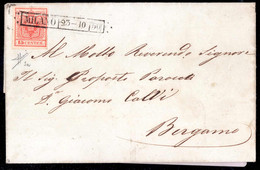 MILANO 23-10
Al Molto Reverendo Signore
Il Sig. Proposto Parroco
D. Giacomo Calvi
Bergamo